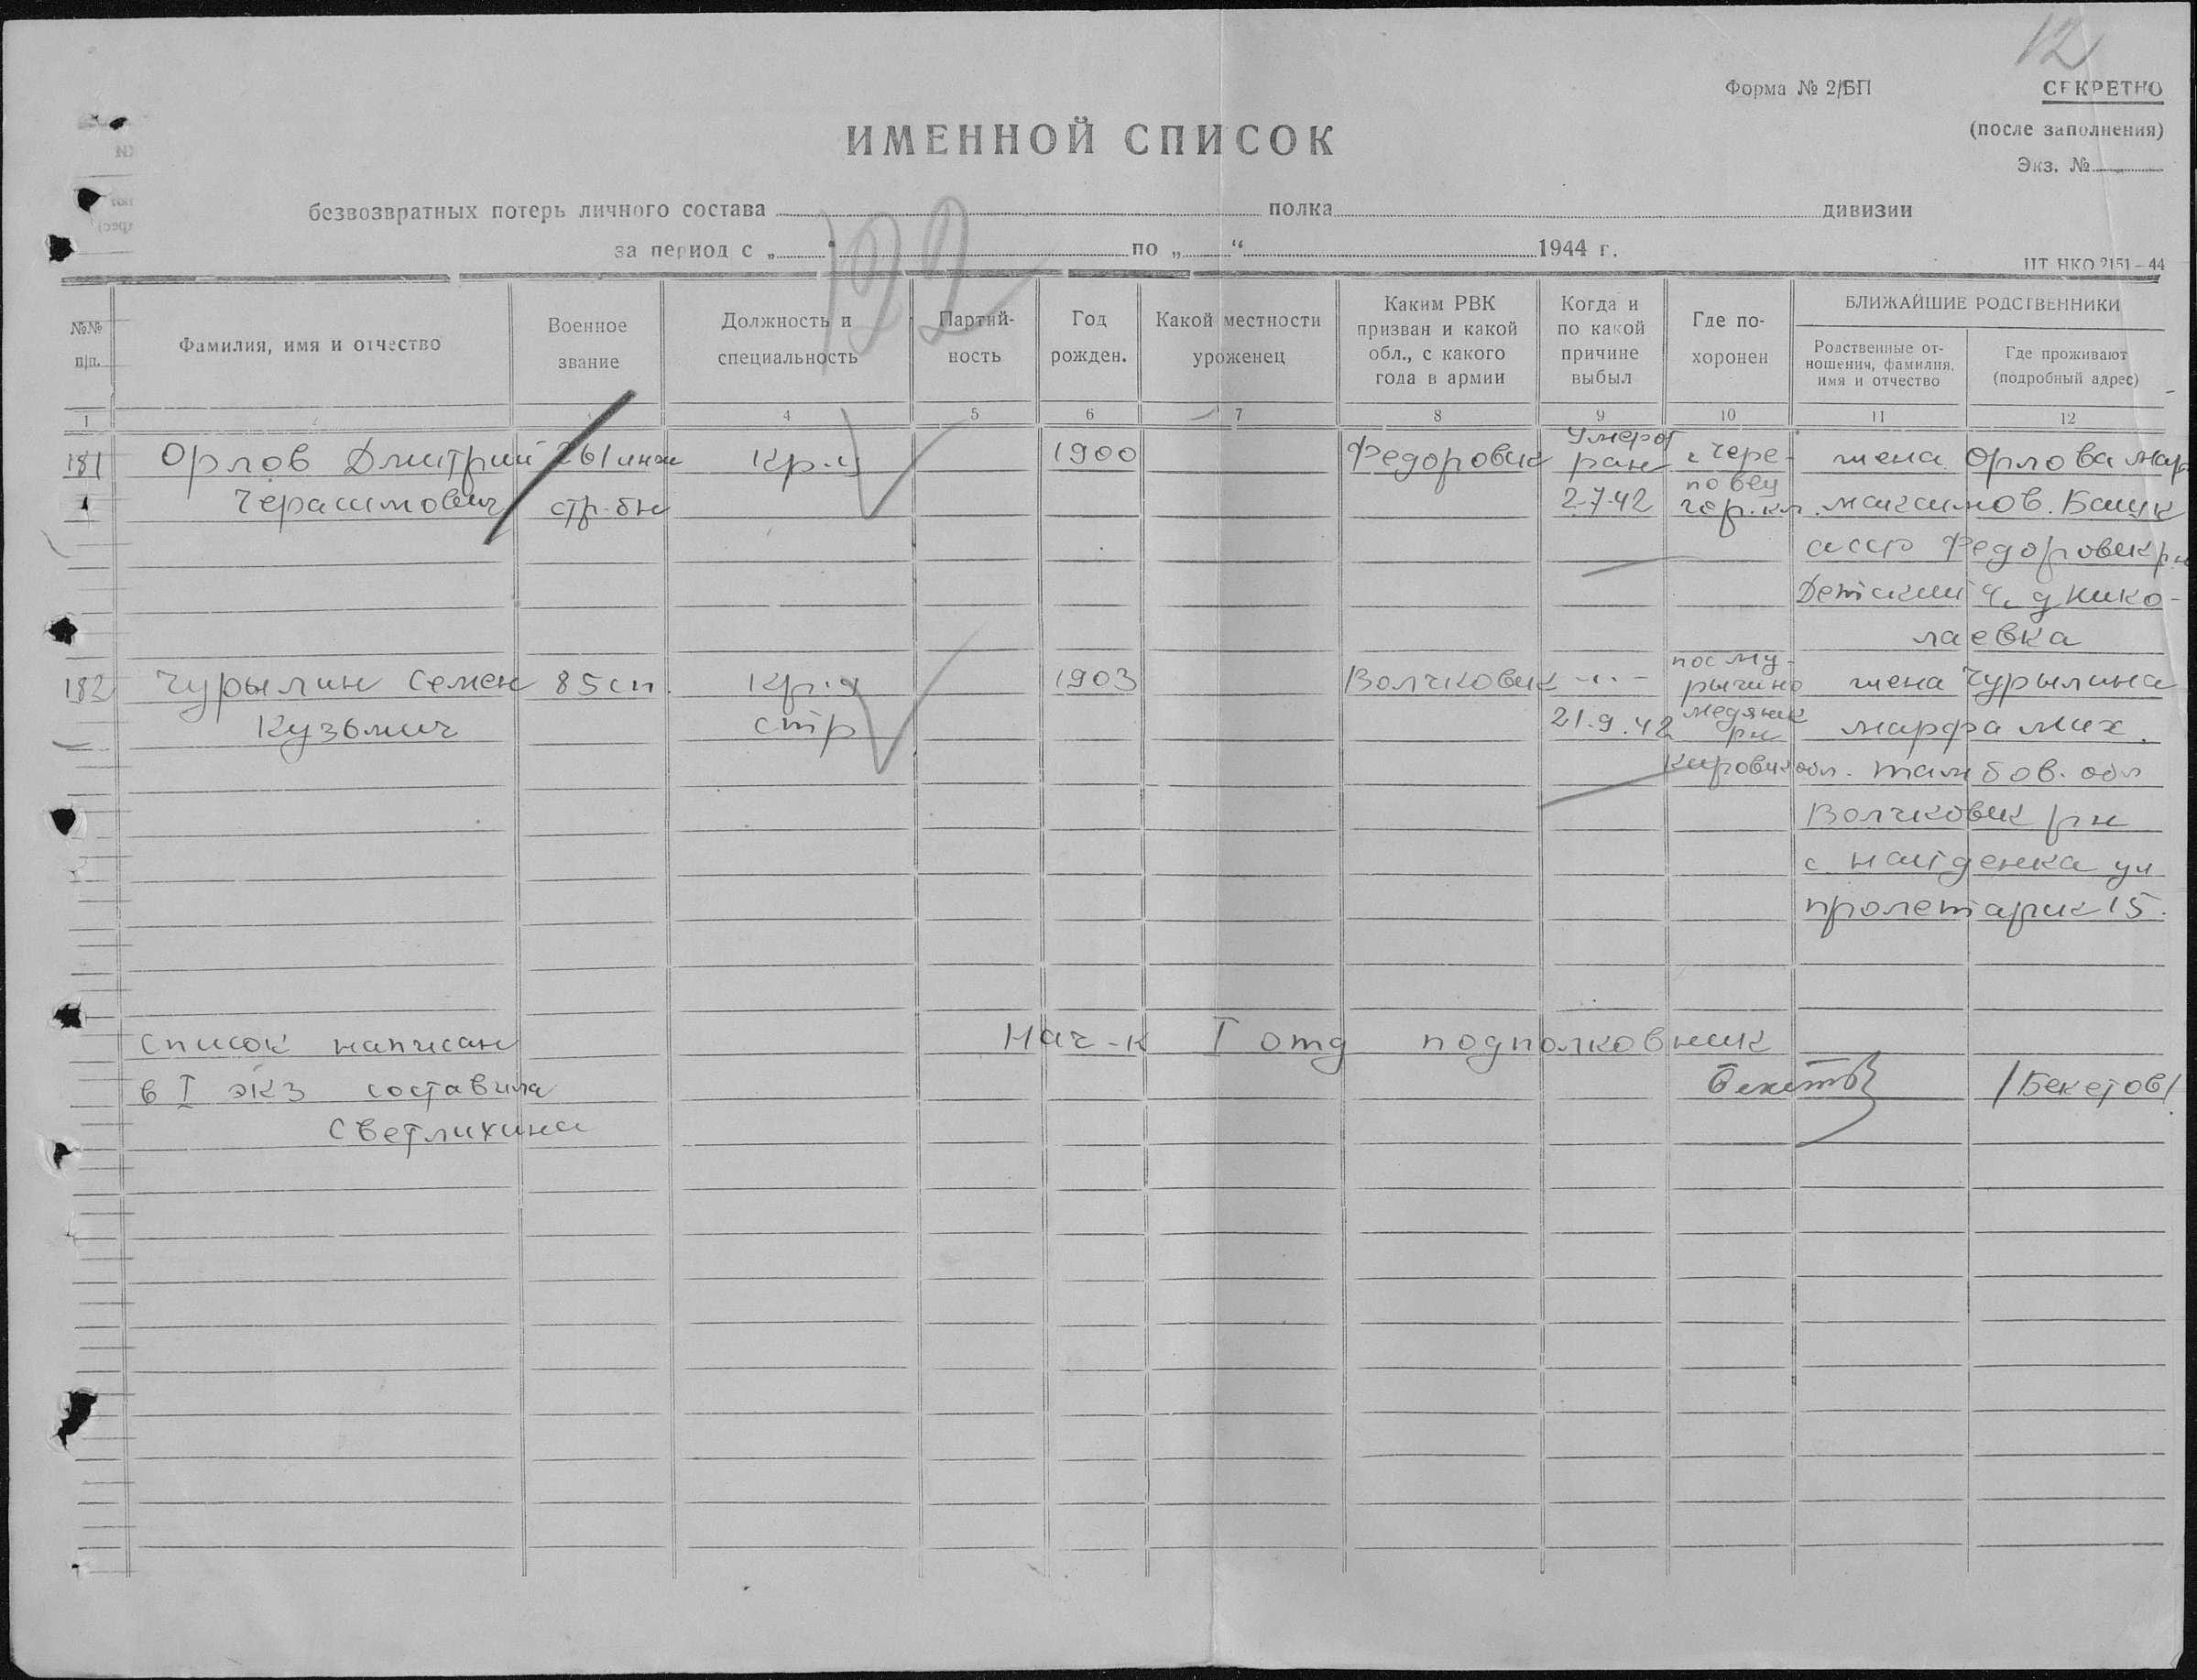 12
Форма № 2/БП
СЕКРЕТНО
(после заполнения)
Экз. №
ИМЕННОЙ СПИСОК
безвозвратных потерь личного состава полка дивизии
за период с „ “ по „ “ 1944 г.
122
ЦТ НКО 2151–44
№№ п/п.
Фамилия, имя и отчество
Военное звание
Должность и специальность
Партийность
Год рожден.
Какой местности уроженец
Каким РВК призван и какой обл., с какого года в армии
Когда и по какой причине выбыл
Где похоронен
БЛИЖАЙШИЕ РОДСТВЕННИКИ
Родственные отношения, фамилия, имя и отчество
Где проживают (подробный адрес)
1 2 4 5 6 7 8 9 10 11 12
181 Орлов Дмитрий 261 инж Кр-ц 1900 Федоровск Умер от ран г. Чере- жена Орлова Мар
Герасимович стр.-бн 2-7-42 повец гор. кл. Максимов. Башк
асср Федоровск рн
Детский д Нико-
лаевка
182 Чурылин Семен 85 сп Кр-ц 1903 Волчковск -"- пос Му- рыгино жена Чурылина
Кузьмич стр 21.9.42 Медянск рн Марфа Мих.
Кировск обл. Тамбов. обл
Волчковск рн
с. Найденка ул
пролетарск 15.
Список написан Нач-к I отд подполковник
в I экз составила Бекетов /Бекетов/
Светлихина